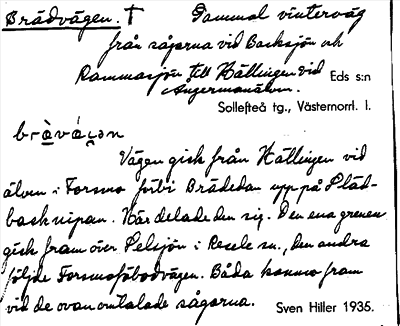 Brädvägen. † Gammal vinterväg
från sågarna vid Backsjön och
Rammasjön till Källingen vid Eds s:n
Ångermanälven.
Sollefteå tg., Västernorrl. l.
Vägen gick från Källingen vid
älven i Forsmo förbi Brädedan upp på Släd-
backnipan. Här delade den sig. Den ena grenen
gick fram över Pelsjön i Resele sn., den andra
följde Forsmofäbodvägen. Båda kommo fram
vid de ovan omtalade sågarna. Sven Hiller 1935.